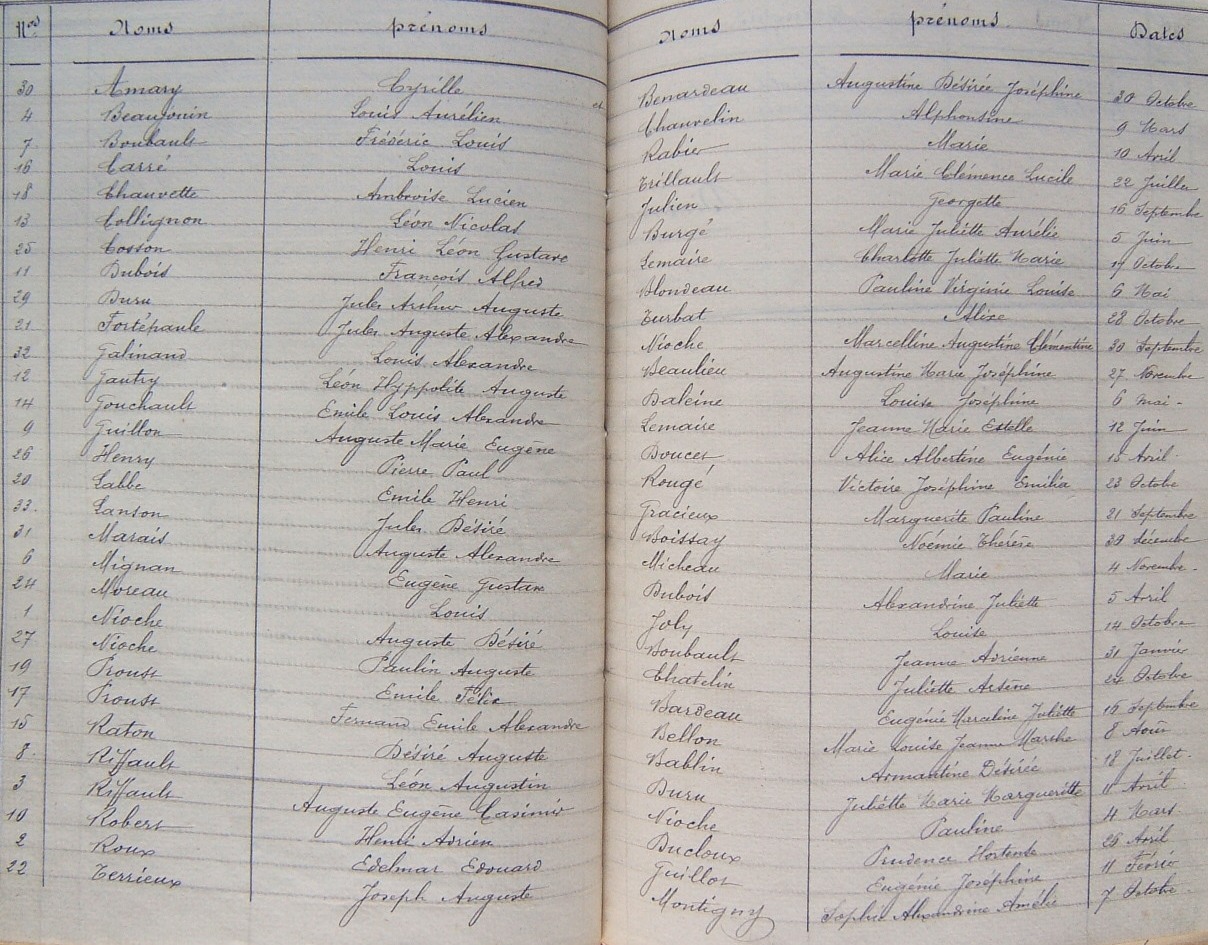 Nos Noms prénoms Noms prénoms Dates
30 Amary Cyrille et Benardeau Augustine Désirée Joséphine 30 Octobre
4 Beaujouin Louis Aurélien Chauvelin Alphonsine 9 Mars
7 Boubault Frédéric Louis Rabier Marie 10 Avril
16 Carré Louis Trillault Marie Clémence Lucile 22 Juillet
18 Chauvette Ambroise Lucien Julien Georgette 16 Septembre
13 Collignon Léon Nicolas Burgé Marie Juliette Aurélie 5 Juin
25 Cosson Henri Léon Gustave Lemaire Charlotte Juliette Marie 17 Octobre
11 Dubois François Alfred Blondeau Pauline Virginie Louise 6 Mai
29 Duru Jules Arthur Auguste Turbat Alixe 28 Octobre
21 Fortépaule Jules Auguste Alexandre Nioche Marcelline Augustine Clémentine 30 Septembre
32 Galinand Louis Alexandre Beaulieu Augustine Marie Joséphine 27 Novembre
12 Gautry Léon Hyppolite Auguste Baleine Louise Joséphine 6 mai -
14 Gouchault Emile Louis Alexandre Lemaire Jeanne Marie Estelle 12 Juin
9 Guillon Auguste Marie Eugène Doucet Alice Albertine Eugénie 15 Avril
26 Henry Pierre Paul Rougé Victoire Joséphine Emilia 23 Octobre
20 Labbe Emile Henri Gracieux Marguerite Pauline 21 Septembre
33 Lanson Jules Désiré Boissay Noémie Thérèse 30 décembre
31 Marais Auguste Alexandre Micheau Marie 4 Novembre
6 Mignan Eugène Gustave Dubois Alexandrine Juliette 5 Avril
24 Moreau Louis Joly Louise 14 Octobre
1 Nioche Auguste Désiré Boubault Jeanne Adrienne 31 Janvier
27 Nioche Paulin Auguste Chatelin Juliette Arsène 24 Octobre
19 Proust Emile Félix Bardeau Eugénie Marceline Juliette 16 Septembre
17 Proust Fernand Emile Alexandre Bellon Marie Louise Jeanne Marthe 8 Août
15 Raton Désiré Auguste Bablin Armantine Désirée 18 Juillet
8 Riffault Léon Augustin Duru Juliette Marie Marguerite 11 Avril
3 Riffault Auguste Eugène Casimir Nioche Pauline 4 Mars
10 Robert Henri Adrien Ducloux Prudence Hortense 26 Avril
2 Roux Edelmar Edouard Guillot Eugénie Joséphine 11 Février
22 Terrieux Joseph Auguste Montigny Sophie Alexandrine Amélie 7 Octobre